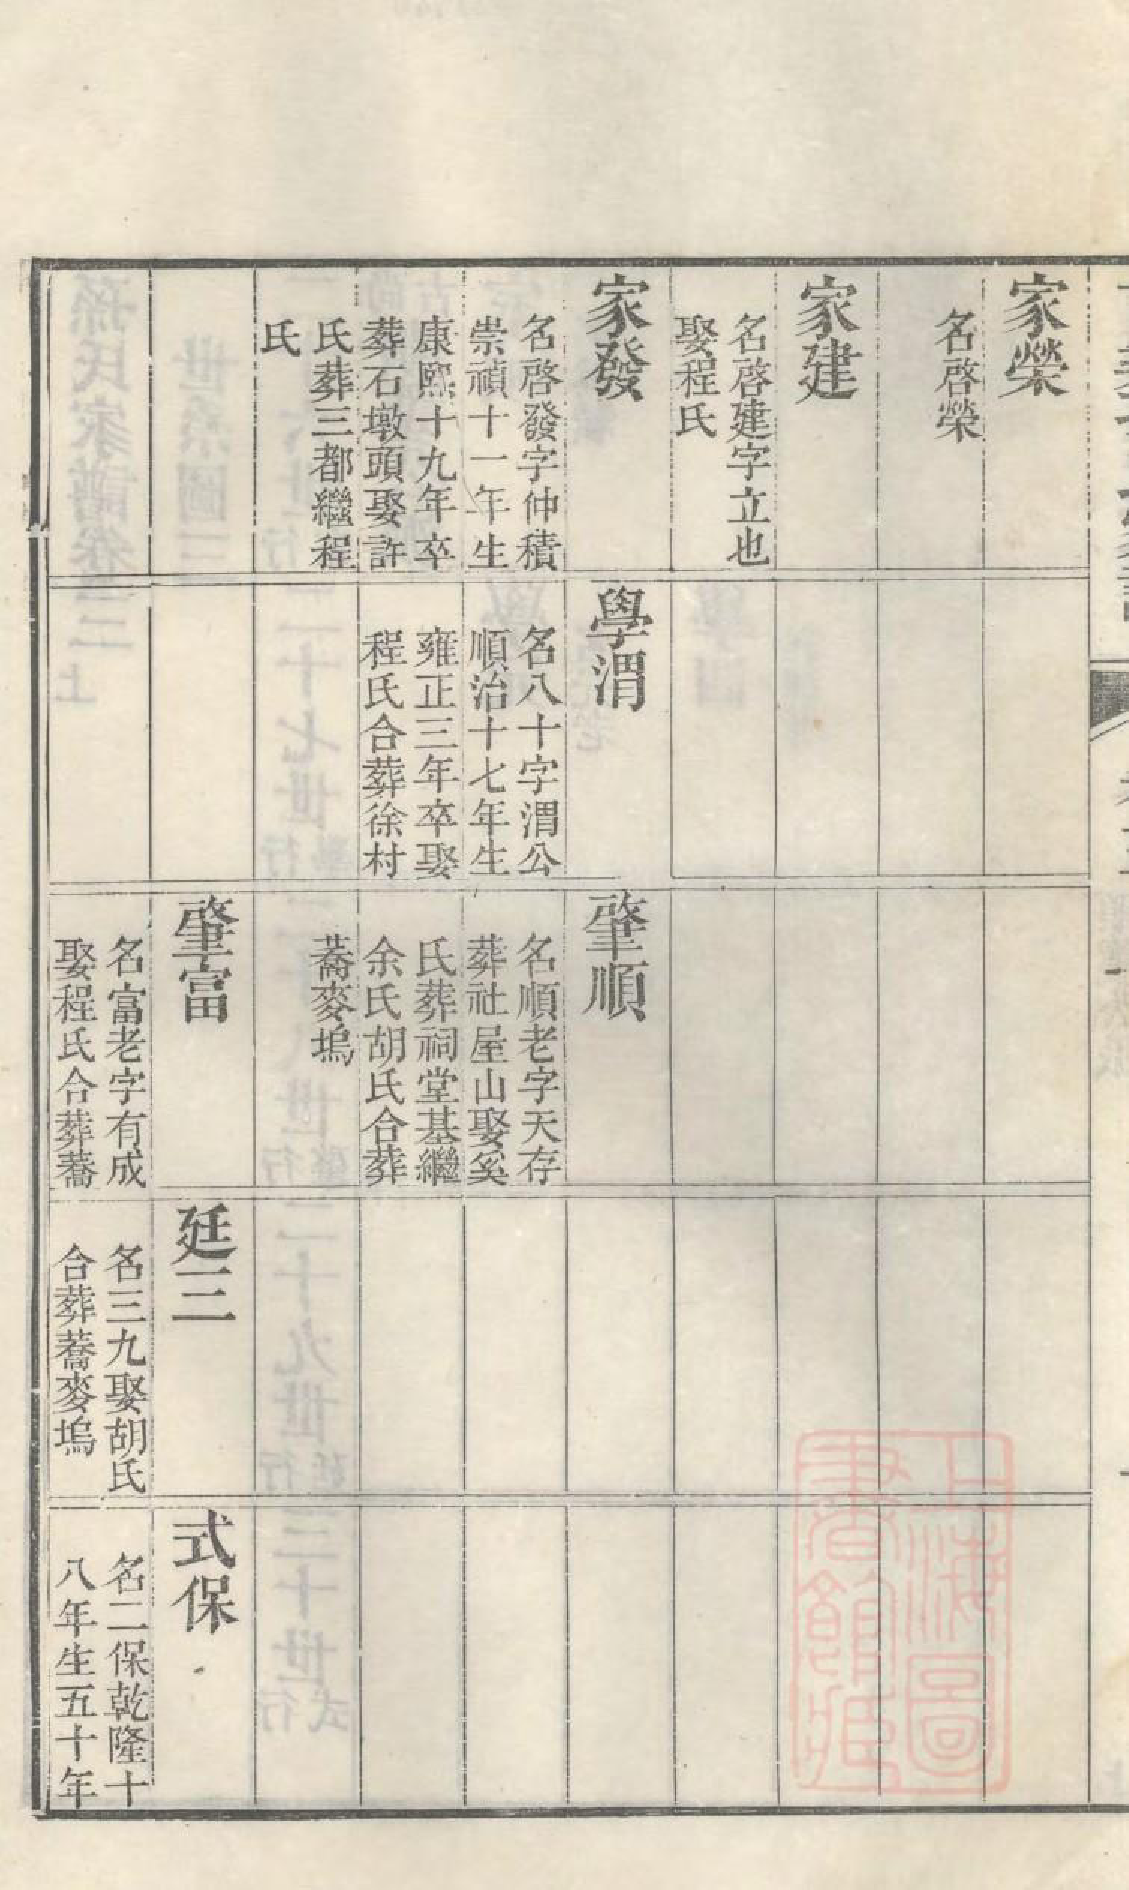 家榮
名啓榮
家建
名啓建字立也
娶程氏
家發
名啓發字仲積
崇禎十一年生
康熙十九年卒
葬石墩頭娶許
氏葬三都繼程
氏
學渭
名八十字渭公
順治十七年生
雍正三年卒娶
程氏合葬徐村
肇順
名順老字天存
葬社屋山娶奚
氏葬祠堂基繼
余氏胡氏合葬
蕎麥塢
肇富
名富老字有成
娶程氏合葬蕎
廷三
名三九娶胡氏
合葬蕎麥塢
式保
名二保乾隆十
八年生五十年
上海圖
書館藏